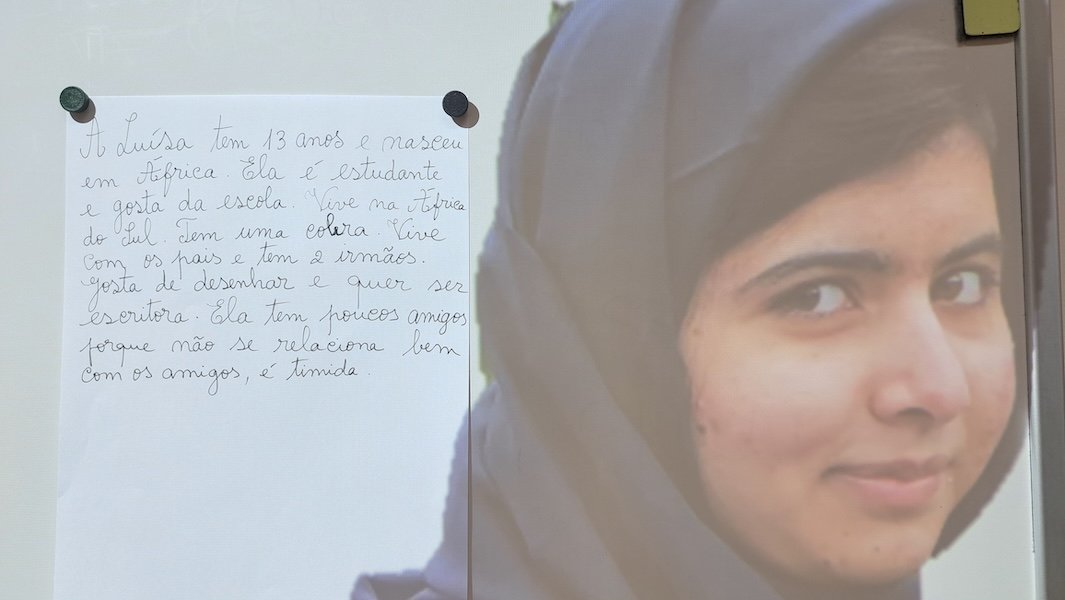 A Luísa tem 13 anos e nasceu
em África. Ela é estudante
e gosta da escola. Vive na África
do Sul. Tem uma cobra. Vive
com os pais e tem 2 irmãos.
Gosta de desenhar e quer ser
escritora. Ela tem poucos amigos
porque não se relaciona bem
com os amigos, é timida.